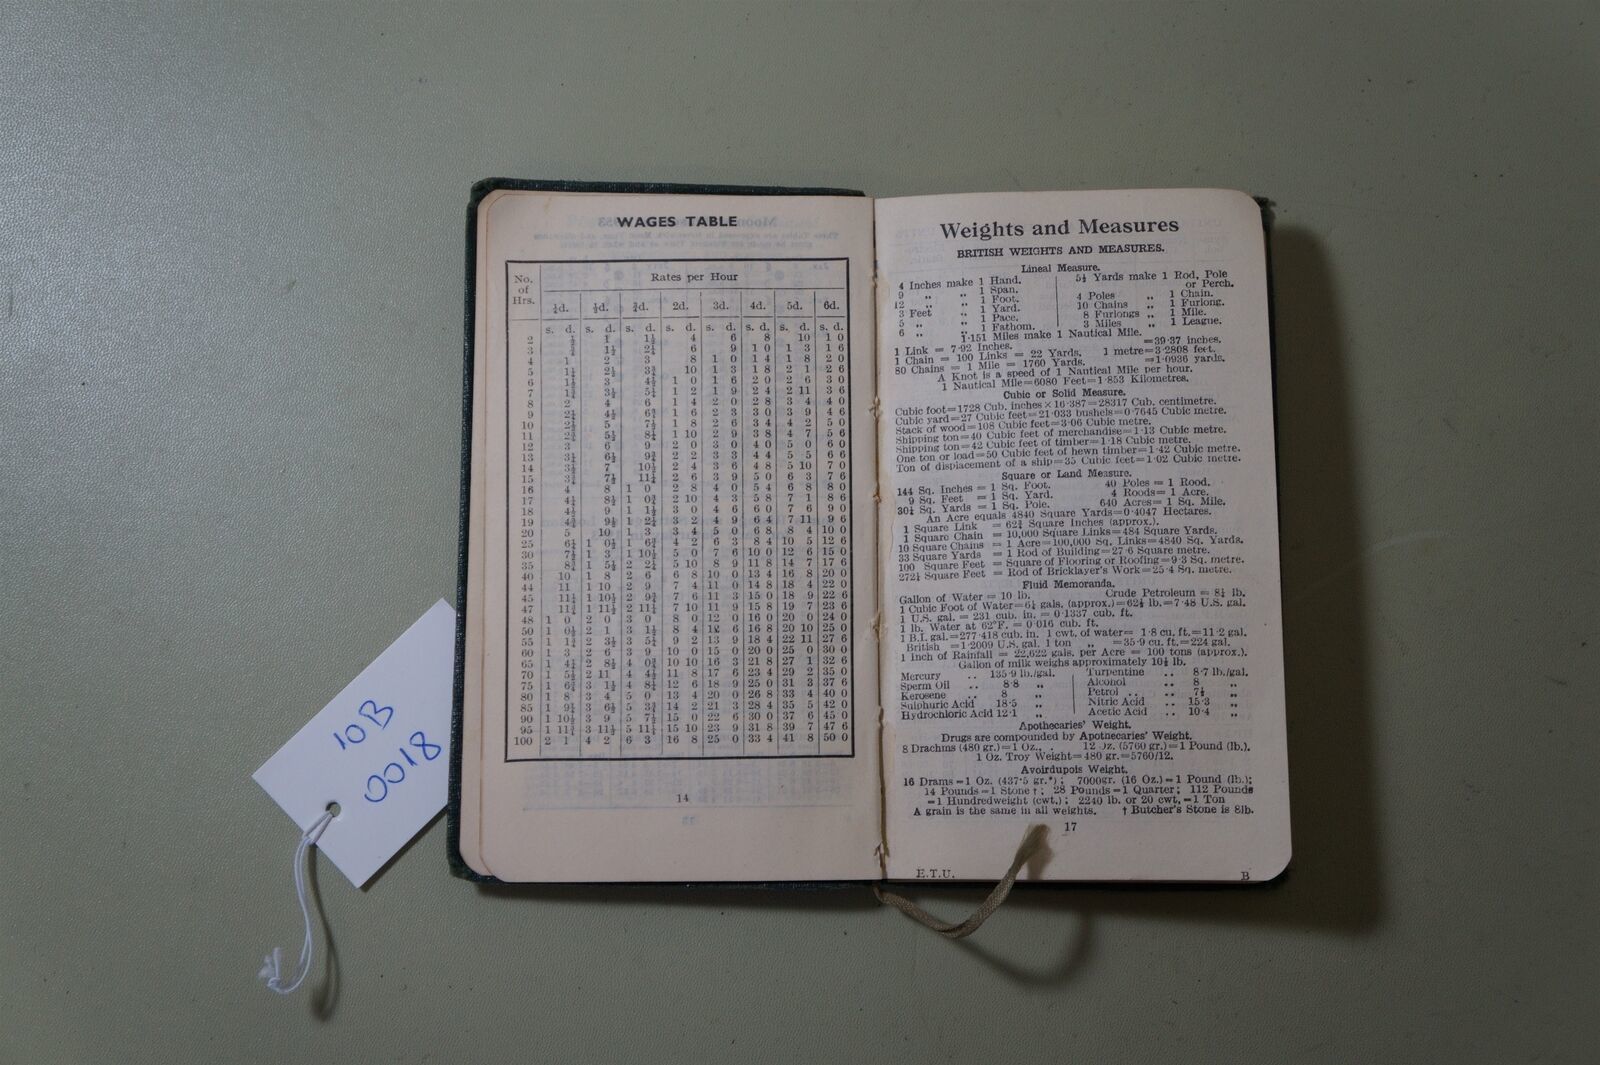 WAGES TABLE
No. of Hrs.
Rates per Hour
¼d. ½d. ¾d. 2d. 3d. 4d. 5d. 6d.
s. d. s. d. s. d. s. d. s. d. s. d. s. d. s. d.
2 ½ 1 1½ 4 6 8 10 1 0
3 ¾ 1½ 2¼ 6 9 1 0 1 3 1 6
4 1 2 3 8 1 0 1 4 1 8 2 0
5 1¼ 2½ 3¾ 10 1 3 1 8 2 1 2 6
6 1½ 3 4½ 1 0 1 6 2 0 2 6 3 0
7 1¾ 3½ 5¼ 1 2 1 9 2 4 2 11 3 6
8 2 4 6 1 4 2 0 2 8 3 4 4 0
9 2¼ 4½ 6¾ 1 6 2 3 3 0 3 9 4 6
10 2½ 5 7½ 1 8 2 6 3 4 4 2 5 0
11 2¾ 5½ 8¼ 1 10 2 9 3 8 4 7 5 6
12 3 6 9 2 0 3 0 4 0 5 0 6 0
13 3¼ 6½ 9¾ 2 2 3 3 4 4 5 5 6 6
14 3½ 7 10½ 2 4 3 6 4 8 5 10 7 0
15 3¾ 7½ 11¼ 2 6 3 9 5 0 6 3 7 6
16 4 8 1 0 2 8 4 0 5 4 6 8 8 0
17 4¼ 8½ 1 0¾ 2 10 4 3 5 8 7 1 8 6
18 4½ 9 1 1½ 3 0 4 6 6 0 7 6 9 0
19 4¾ 9½ 1 2¼ 3 2 4 9 6 4 7 11 9 6
20 5 10 1 3 3 4 5 0 6 8 8 4 10 0
25 6¼ 1 0½ 1 6¾ 4 2 6 3 8 4 10 5 12 6
30 7½ 1 3 1 10½ 5 0 7 6 10 0 12 6 15 0
35 8¾ 1 5½ 2 2¼ 5 10 8 9 11 8 14 7 17 6
40 10 1 8 2 6 6 8 10 0 13 4 16 8 20 0
44 11 1 10 2 9 7 4 11 0 14 8 18 4 22 0
45 11¼ 1 10½ 2 9¾ 7 6 11 3 15 0 18 9 22 6
47 11¾ 1 11½ 2 11¼ 7 10 11 9 15 8 19 7 23 6
48 1 0 2 0 3 0 8 0 12 0 16 0 20 0 24 0
50 1 0½ 2 1 3 1½ 8 4 12 6 16 8 20 10 25 0
55 1 1¾ 2 3½ 3 5¼ 9 2 13 9 18 4 22 11 27 6
60 1 3 2 6 3 9 10 0 15 0 20 0 25 0 30 0
65 1 4¼ 2 8½ 4 0¾ 10 10 16 3 21 8 27 1 32 6
70 1 5½ 2 11 4 4½ 11 8 17 6 23 4 29 2 35 0
75 1 6¾ 3 1½ 4 8¼ 12 6 18 9 25 0 31 3 37 6
80 1 8 3 4 5 0 13 4 20 0 26 8 33 4 40 0
85 1 9¼ 3 6½ 5 3¾ 14 2 21 3 28 4 35 5 42 0
90 1 10½ 3 9 5 7½ 15 0 22 6 30 0 37 6 45 0
95 1 11¾ 3 11½ 5 11¼ 15 10 23 9 31 8 39 7 47 6
100 2 1 4 2 6 3 16 8 25 0 33 4 41 8 50 0
14
10B
0018
Weights and Measures
BRITISH WEIGHTS AND MEASURES.
Lineal Measure.
4 Inches make 1 Hand.
9 „ „ 1 Span.
12 „ „ 1 Foot.
3 Feet „ 1 Yard.
5 „ „ 1 Pace.
6 „ „ 1 Fathom.
5½ Yards make 1 Rod, Pole
or Perch.
4 Poles „ 1 Chain.
10 Chains „ 1 Furlong.
8 Furlongs „ 1 Mile.
3 Miles „ 1 League.
1·151 Miles make 1 Nautical Mile.
1 Link = 7·92 Inches. =39·37 inches.
1 Chain = 100 Links = 22 Yards. 1 metre=3·2808 feet.
80 Chains = 1 Mile = 1760 Yards. =1·0936 yards.
A Knot is a speed of 1 Nautical Mile per hour.
1 Nautical Mile=6080 Feet=1·853 Kilometres.
Cubic or Solid Measure.
Cubic foot=1728 Cub. inches×16·387=28317 Cub. centimetre.
Cubic yard=27 Cubic feet=21·033 bushels=0·7645 Cubic metre.
Stack of wood=108 Cubic feet=3·06 Cubic metre.
Shipping ton=40 Cubic feet of merchandise=1·13 Cubic metre.
Shipping ton=42 Cubic feet of timber=1·18 Cubic metre.
One ton or load=50 Cubic feet of hewn timber=1·42 Cubic metre.
Ton of displacement of a ship=35 Cubic feet=1·02 Cubic metre.
Square or Land Measure.
144 Sq. Inches = 1 Sq. Foot. 40 Poles = 1 Rood.
9 Sq. Feet = 1 Sq. Yard. 4 Roods= 1 Acre.
30¼ Sq. Yards = 1 Sq. Pole. 640 Acres= 1 Sq. Mile.
An Acre equals 4840 Square Yards=0·4047 Hectares.
1 Square Link = 62¾ Square Inches (approx.).
1 Square Chain = 10,000 Square Links=484 Square Yards.
10 Square Chains = 1 Acre=100,000 Sq. Links=4840 Sq. Yards.
33 Square Yards = 1 Rod of Building=27·6 Square metre.
100 Square Feet = Square of Flooring or Roofing=9·3 Sq. metre.
272¼ Square Feet = Rod of Bricklayer's Work=25·4 Sq. metre.
Fluid Memoranda.
Gallon of Water = 10 lb. Crude Petroleum = 8¼ lb.
1 Cubic Foot of Water=6¼ gals. (approx.)=62¼ lb.=7·48 U.S. gal.
1 U.S. gal. = 231 cub. in. = 0·1337 cub. ft.
1 lb. Water at 62°F. = 0·016 cub. ft.
1 B.I. gal.=277·418 cub. in. 1 cwt. of water= 1·8 cu. ft.=11·2 gal.
British =1·2009 U.S. gal. 1 ton „ =35·9 cu. ft.=224 gal.
1 Inch of Rainfall = 22,622 gals. per Acre = 100 tons (approx.).
Gallon of milk weighs approximately 10¼ lb.
Mercury .. 135·9 lb./gal. Turpentine .. 8·7 lb./gal.
Sperm Oil .. 8·8 „ Alcohol .. 8 „
Kerosene .. 8 „ Petrol .. .. 7¼ „
Sulphuric Acid 18·5 „ Nitric Acid .. 15·3 „
Hydrochloric Acid 12·1 „ Acetic Acid .. 10·4 „
Apothecaries' Weight.
Drugs are compounded by Apothecaries' Weight.
8 Drachms (480 gr.)=1 Oz.. . 12 Oz. (5760 gr.)=1 Pound (lb.).
1 Oz. Troy Weight=480 gr.=5760/12.
Avoirdupois Weight.
16 Drams=1 Oz. (437·5 gr.*); 7000gr. (16 Oz.)=1 Pound (lb.);
14 Pounds=1 Stone†; 28 Pounds=1 Quarter; 112 Pounds
=1 Hundredweight (cwt.); 2240 lb. or 20 cwt.=1 Ton
A grain is the same in all weights. † Butcher's Stone is 8lb.
17
E.T.U. B